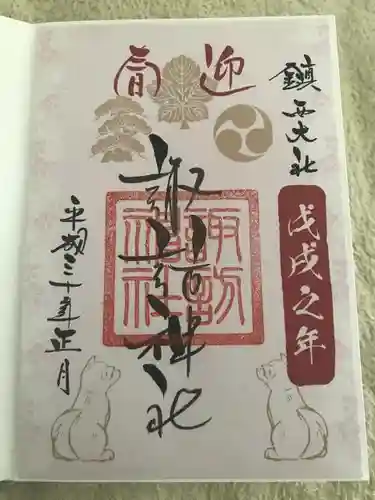 迎春
鎮西大社
戊戌之年
諏訪神社
諏訪神社
平成三十年正月